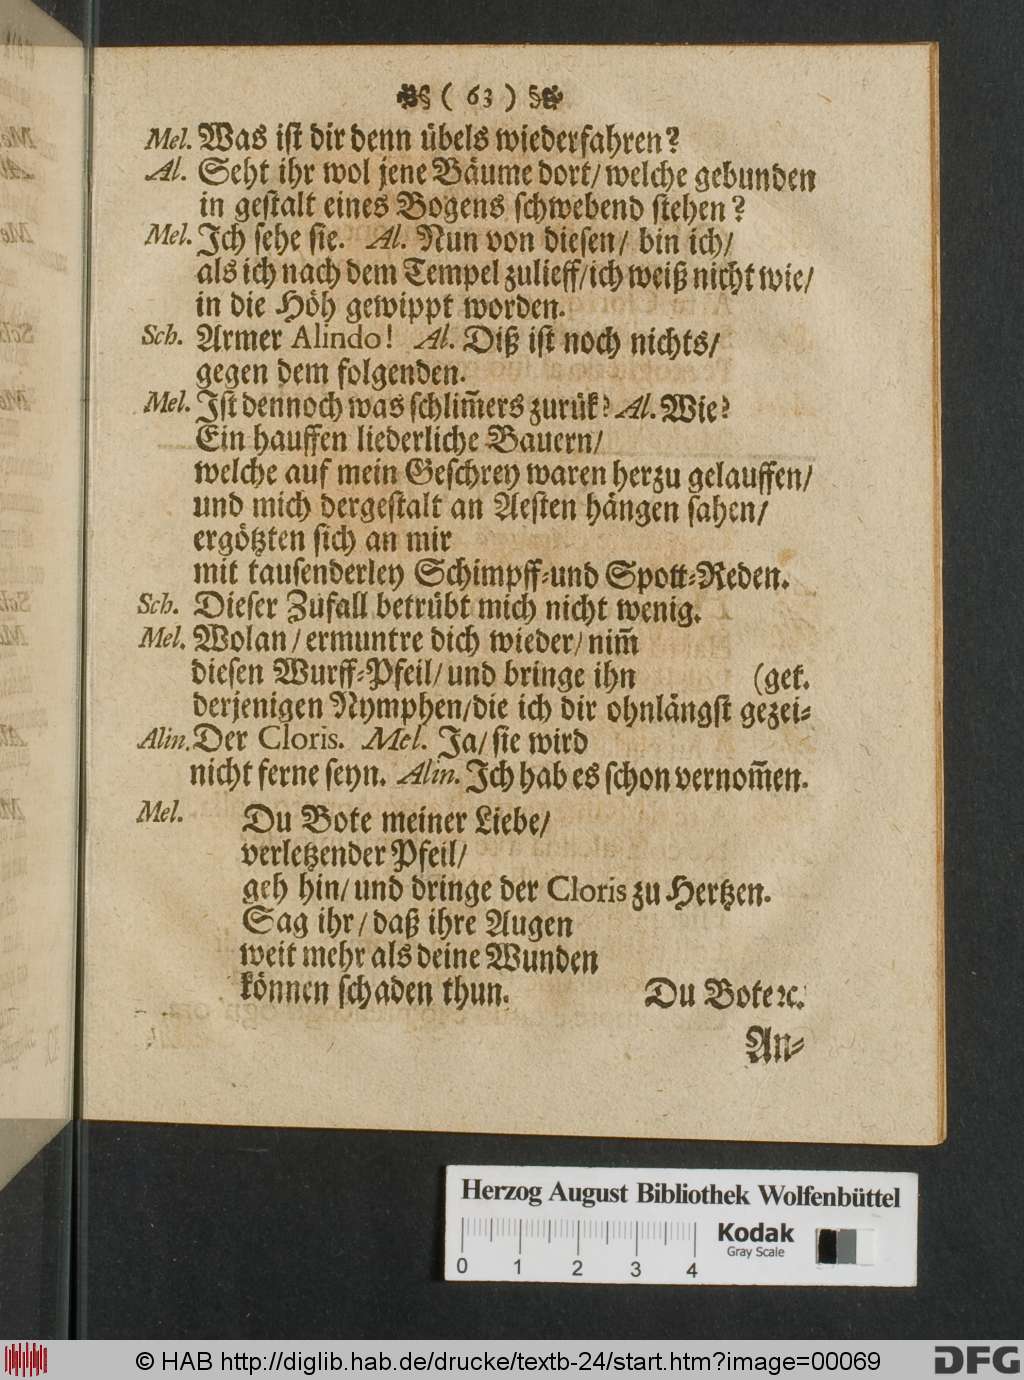 ( 63 )
Mel. Was ist dir denn übels wiederfahren?
Al. Seht ihr wol jene Bäume dort/ welche gebunden
in gestalt eines Bogens schwebend stehen?
Mel. Ich sehe sie. Al. Nun von diesen/ bin ich/
als ich nach dem Tempel zulieff/ ich weiß nicht wie/
in die Höh gewippt worden.
Sch. Armer Alindo! Al. Diß ist noch nichts/
gegen dem folgenden.
Mel. Ist dennoch was schlim̃ers zurük? Al. Wie?
Ein hauffen liederliche Bauern/
welche auf mein Geschrey waren herzu gelauffen/
und mich dergestalt an Aesten hängen sahen/
ergötzten sich an mir
mit tausenderley Schimpff-und Spott-Reden.
Sch. Dieser Zufall betrübt mich nicht wenig.
Mel. Wolan/ ermuntre dich wieder/ nim̃
diesen Wurff-Pfeil/ und bringe ihn (get.
derjenigen Nymphen/ die ich dir ohnlängst gezei-
Alin. Der Cloris. Mel. Ja/ sie wird
nicht ferne seyn. Alin. Ich hab es schon vernom̃en.
Mel. Du Bote meiner Liebe/
verletzender Pfeil/
geh hin/ und dringe der Cloris zu Hertzen.
Sag ihr/ daß ihre Augen
weit mehr als deine Wunden
können schaden thun. Du Bote ꝛc.
An-
Herzog August Bibliothek Wolfenbüttel
0 1 2 3 4
Kodak
Gray Scale
© HAB http://diglib.hab.de/drucke/textb-24/start.htm?image=00069
DFG